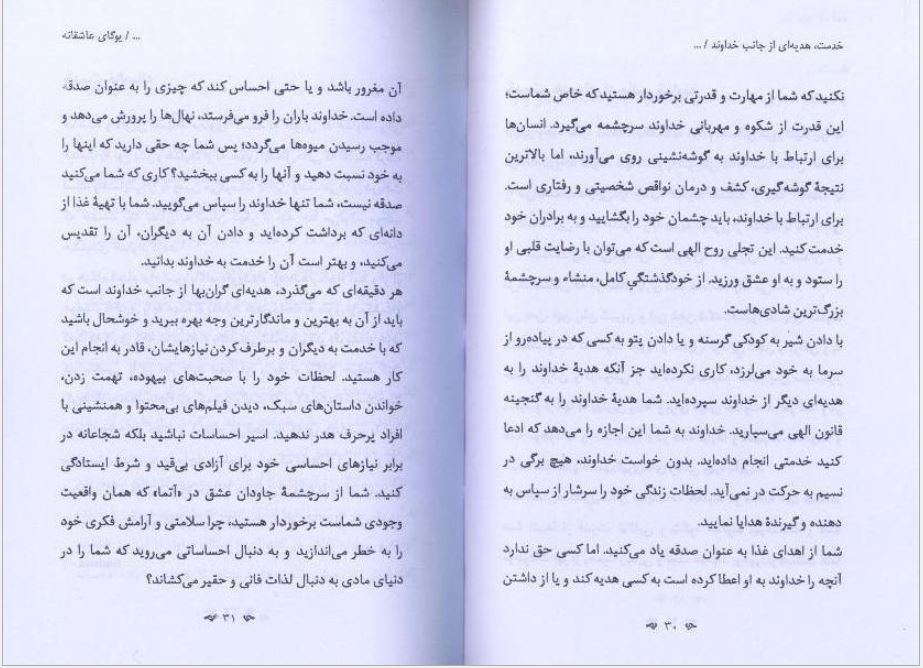 خدمت، هدیه‌ای از جانب خداوند / ...
نکنید که شما از مهارت و قدرتی برخوردار هستید که خاص شماست؛
این قدرت از شکوه و مهربانی خداوند سرچشمه می‌گیرد. انسان‌ها
برای ارتباط با خداوند به گوشه‌نشینی روی می‌آورند، اما بالاترین
نتیجۀ گوشه‌گیری، کشف و درمان نواقص شخصیتی و رفتاری است.
برای ارتباط با خداوند، باید چشمان خود را بگشایید و به برادران خود
خدمت کنید. این تجلی روح الهی است که می‌توان با رضایت قلبی او
را ستود و به او عشق ورزید. از خودگذشتگیِ کامل، منشاء و سرچشمۀ
بزرگ‌ترین شادی‌هاست.
با دادن شیر به کودکی گرسنه و یا دادن پتو به کسی که در پیاده‌رو از
سرما به خود می‌لرزد، کاری نکرده‌اید جز آنکه هدیۀ خداوند را به
هدیه‌ای دیگر از خداوند سپرده‌اید. شما هدیۀ خداوند را به گنجینه
قانون الهی می‌سپارید. خداوند به شما این اجازه را می‌دهد که ادعا
کنید خدمتی انجام داده‌اید. بدون خواست خداوند، هیچ برگی در
نسیم به حرکت در نمی‌آید. لحظات زندگی خود را سرشار از سپاس به
دهنده و گیرندۀ هدایا نمایید.
شما از اهدای غذا به عنوان صدقه یاد می‌کنید. اما کسی حق ندارد
آنچه را خداوند به او اعطا کرده است به کسی هدیه کند و یا از داشتن
۳۰
... / یوگای عاشقانه
آن مغرور باشد و یا حتی احساس کند که چیزی را به عنوان صدقه
داده است. خداوند باران را فرو می‌فرستد، نهال‌ها را پرورش می‌دهد و
موجب رسیدن میوه‌ها می‌گردد؛ پس شما چه حقی دارید که اینها را
به خود نسبت دهید و آنها را به کسی ببخشید؟ کاری که شما می‌کنید
صدقه نیست، شما تنها خداوند را سپاس می‌گویید. شما با تهیۀ غذا از
دانه‌ای که برداشت کرده‌اید و دادن آن به دیگران، آن را تقدیس
می‌کنید، و بهتر است آن را خدمت به خداوند بدانید.
هر دقیقه‌ای که می‌گذرد، هدیه‌ای گران‌بها از جانب خداوند است که
باید از آن به بهترین و ماندگارترین وجه بهره ببرید و خوشحال باشید
که با خدمت به دیگران و برطرف کردن نیازهایشان، قادر به انجام این
کار هستید. لحظات خود را با صحبت‌های بیهوده، تهمت زدن،
خواندن داستان‌های سبک، دیدن فیلم‌های بی‌محتوا و همنشینی با
افراد پرحرف هدر ندهید. اسیر احساسات نباشید بلکه شجاعانه در
برابر نیازهای احساسی خود برای آزادی بی‌قید و شرط ایستادگی
کنید. شما از سرچشمۀ جاودان عشق در «آتما» که همان واقعیت
وجودی شماست برخوردار هستید، چرا سلامتی و آرامش فکری خود
را به خطر می‌اندازید و به دنبال احساساتی می‌روید که شما را در
دنیای مادی به دنبال لذات فانی و حقیر می‌کشاند؟
۳۱